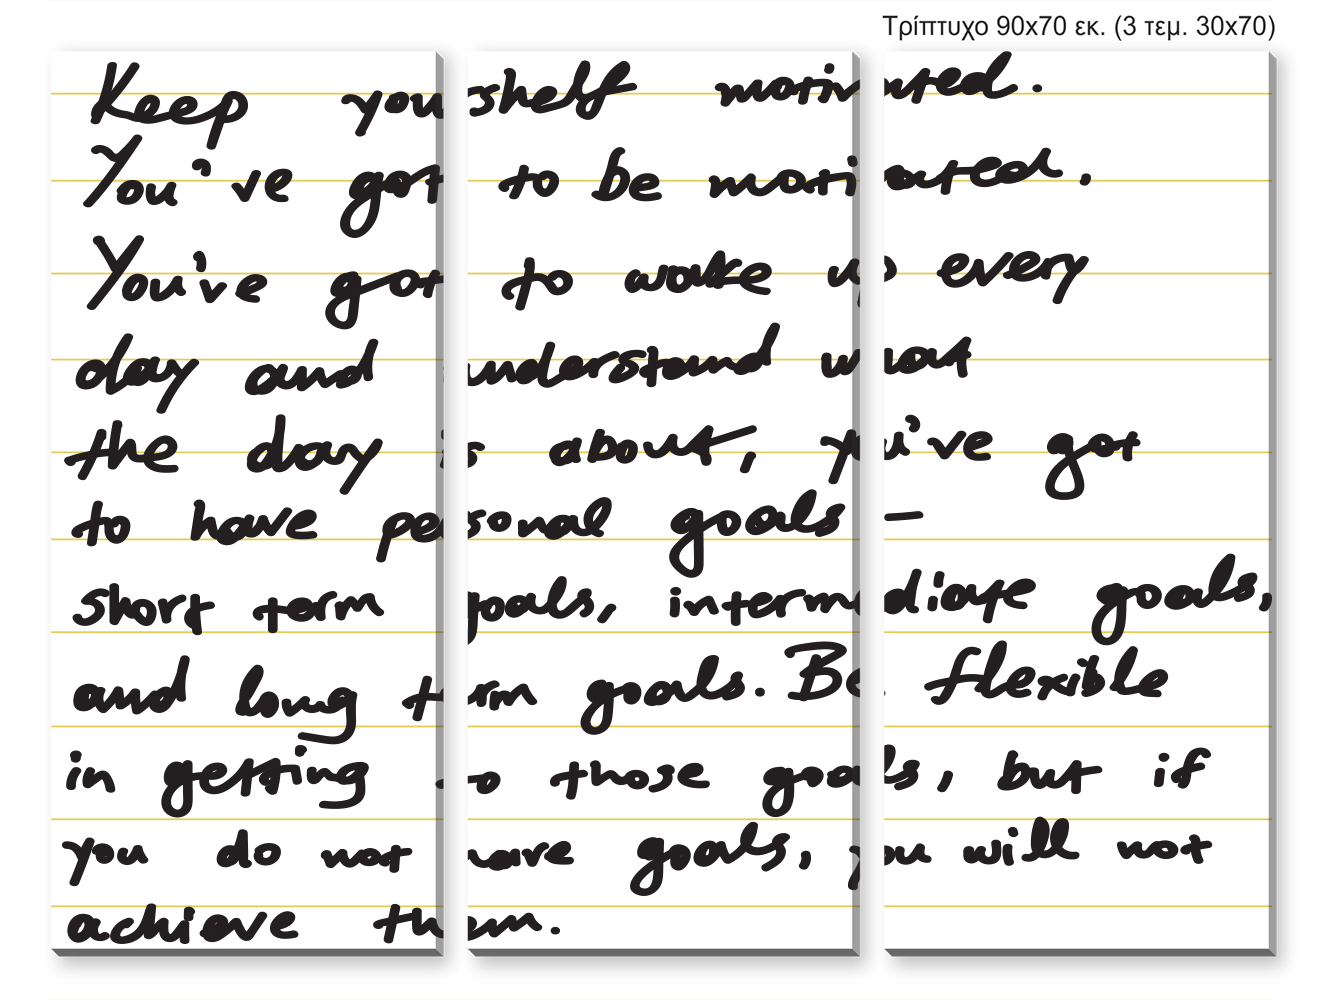 Τρίπτυχο 90x70 εκ. (3 τεμ. 30x70)
Keep yourshelf motivated.
You've got to be motivated.
You've got to wake up every
day and understand what
the day is about, you've got
to have personal goals –
short term goals, intermediate goals,
and long term goals. Be flexible
in getting to those goals, but if
you do not have goals, you will not
achieve them.